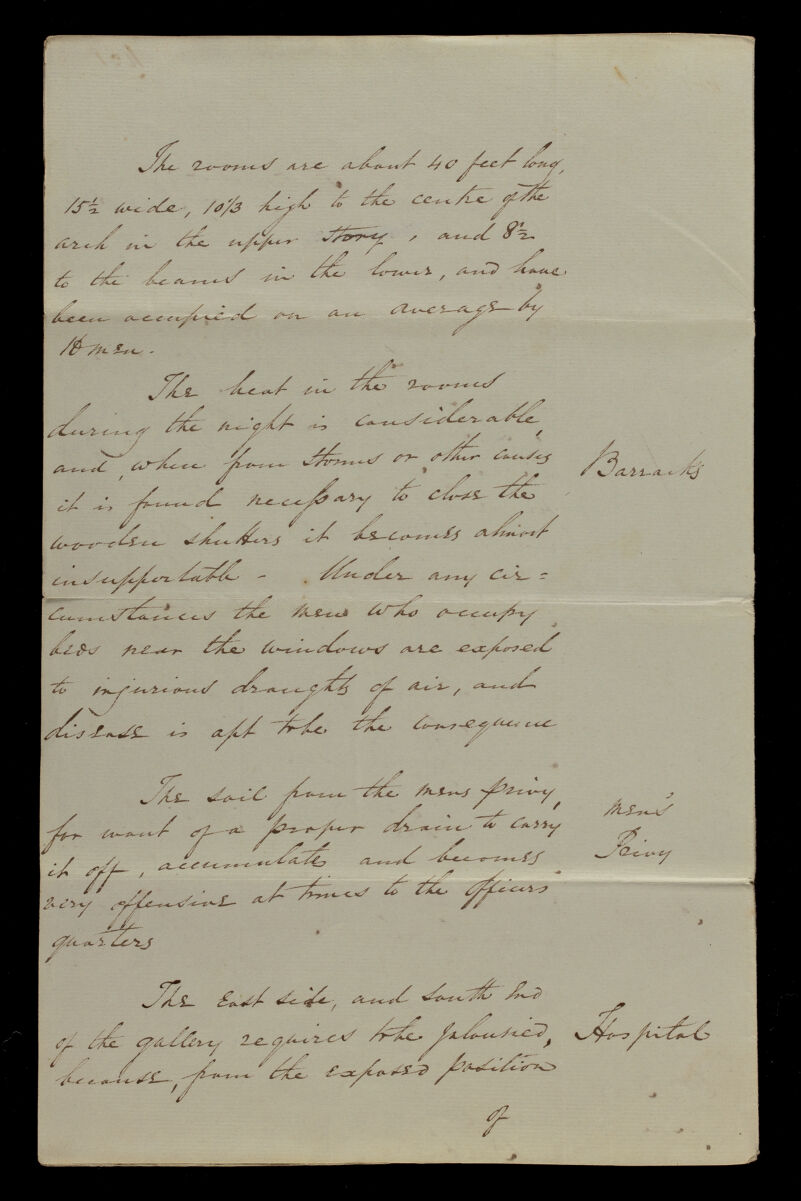 The rooms are about 40 feet long,
15½ wide, 10⅓ high to the centre of the
arch in the upper story, and 8½
to the beams in the lower, and have
been occupied on an average by
men.
The heat in the rooms
during the night is considerable,
and, when from storms or other causes
it is found necessary to close the
wooden shutters it becomes almost
insupportable - Under any cir=
cumstances the men who occupy
beds near the windows are exposed
to injurious draughts of air, and
disease is apt to be the consequence
Barracks
The soil from the mens privy,
for want of a proper drain to carry
it off, accumulates and becomes
very offensive at times to the officers'
quarters
men's
Privy
The East side, and South End
of the gallery requires to be jalousied,
because, from the exposed position
Hospital
of